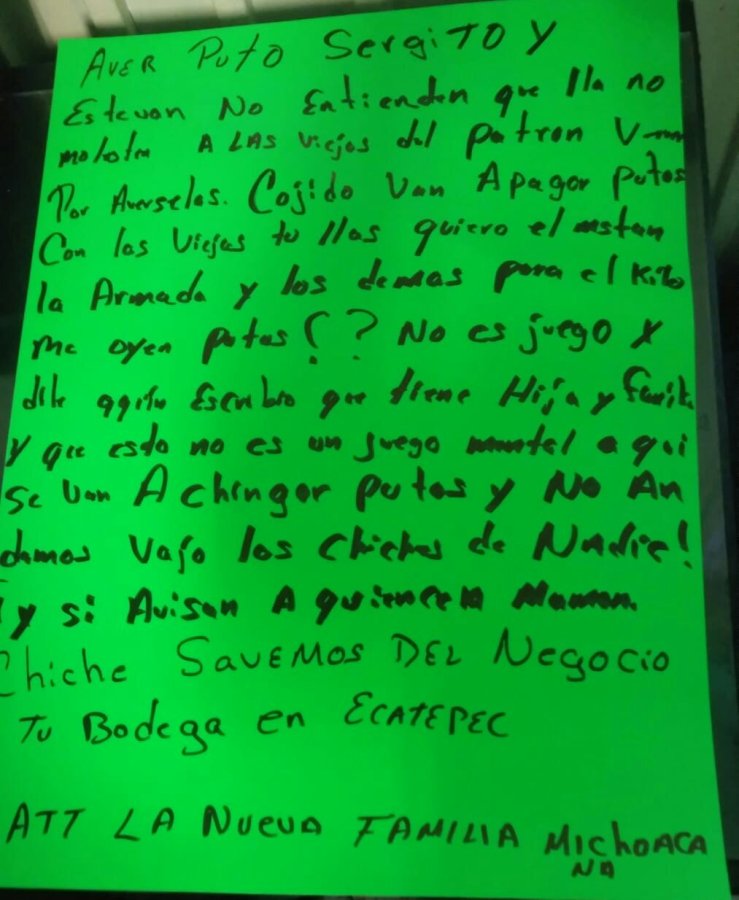 AVER PUTO SERGITO Y
Estevan No Entienden que lla no
A LAS viejas del patron
Por Averselas. Cojido Van A pagar putos
Con las Viejas tullas quiero el mstan
la Armada y los demas para el Kilo
me oyen putos (? No es juego y
dile que tiene Hija y Famili
y que esto no es un juego a qui
se van A chingar putos y No An
damos Vajo los chiches de Nadie!
y si Avisan A
Chiche SAVEMOS DEL Negocio
Tu Bodega en ECATEPEC
ATT LA NUEVA FAMILIA MichoACA
NA